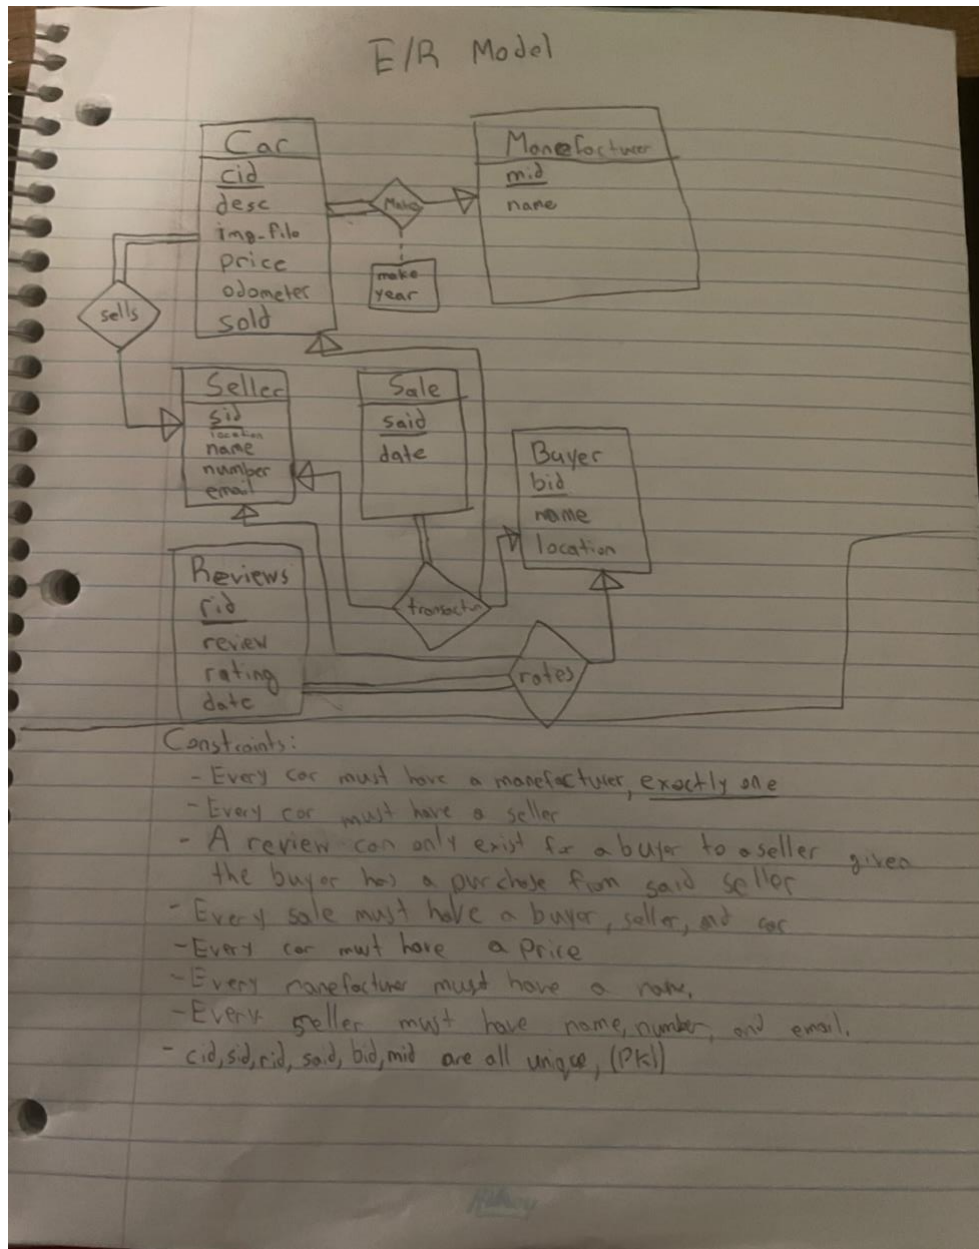 E/R Model
Car
cid
desc
img-file
price
odometer
sold
Manefacturer
mid
name
make
year
sells
Seller
sid
location
name
number
email
Sale
said
date
Buyer
bid
name
location
Reviews
rid
review
rating
date
rates
Constraints:
- Every car must have a manefacturer, exactly one
- Every car must have a seller
- A review can only exist for a buyer to a seller given
the buyer has a purchase from said seller
- Every sale must have a buyer, seller, and car
- Every car must have a price
- Every manefacturer must have a name.
- Every seller must have name, number, and email.
- cid, sid, rid, said, bid, mid are all unique, (PK!)